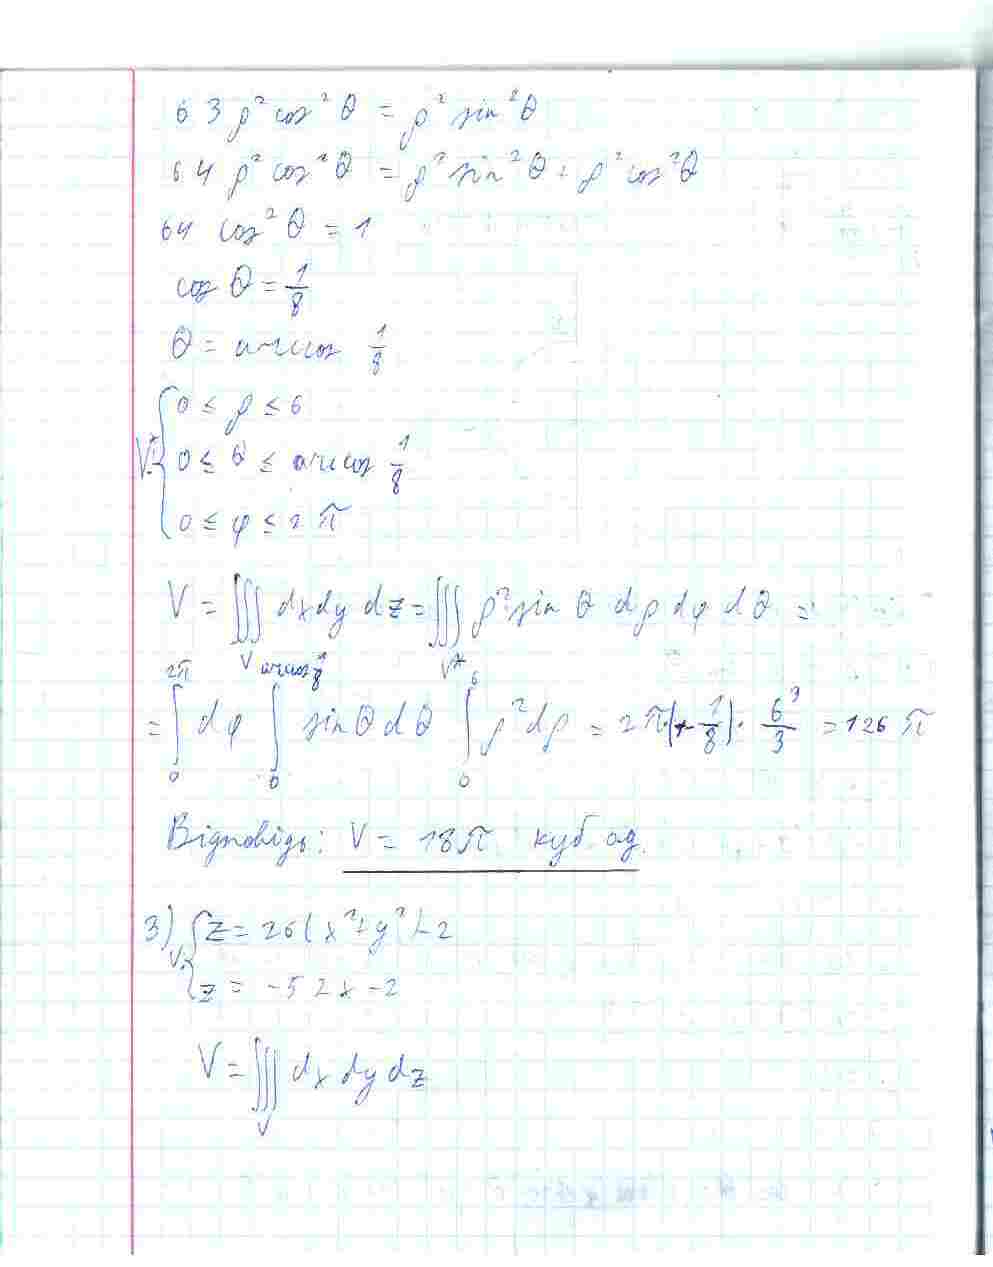 63 ρ² cos² θ = ρ² sin² θ
64 ρ² cos² θ = ρ² sin² θ + ρ² cos² θ
64 cos² θ = 1
cos θ = 1/8
θ = arccos 1/8
V*: { 0 ≤ ρ ≤ 6
0 ≤ θ ≤ arccos 1/8
0 ≤ φ ≤ 2π
V = ∭_V dx dy dz = ∭_V* ρ² sin θ dρ dφ dθ =
= ∫_0^{2π} dφ ∫_0^{arccos 1/8} sin θ dθ ∫_0^6 ρ² dρ = 2π(1 - 1/8) · 6³/3 = 126 π
Відповідь: V = 18π куб од.
3) V: { z = 26(x² + y²) - 2
z = -52x - 2
V = ∭_V dx dy dz